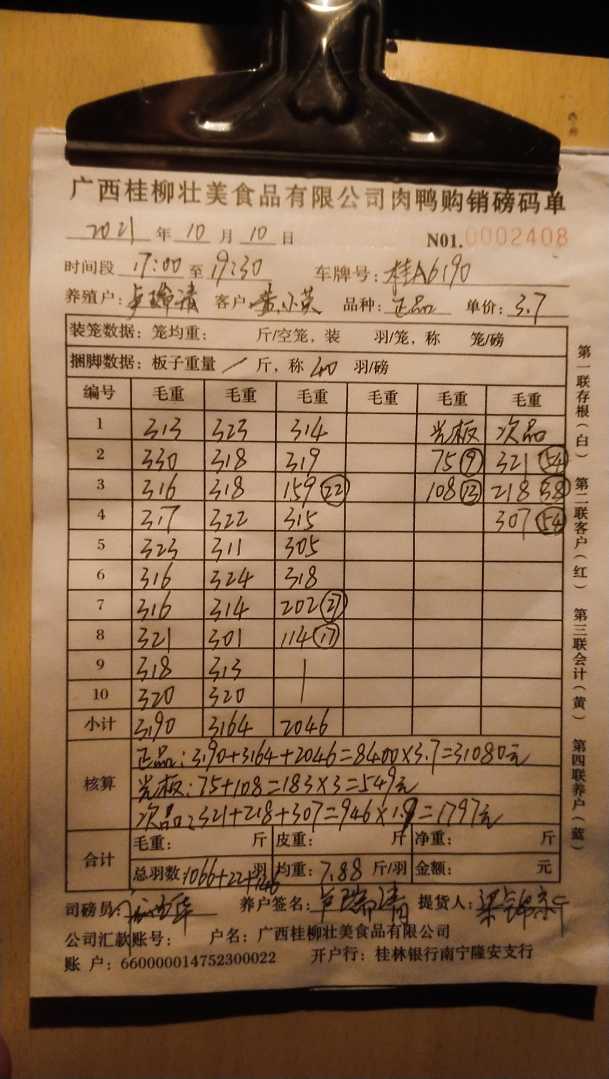 广西桂柳壮美食品有限公司肉鸭购销磅码单
2021 年 10 月 10 日 N01.0002408
时间段 17:00 至 19:30 车牌号: 桂A6190
养殖户: 客户: 黄小英 品种: 正品 单价: 3.7
装笼数据: 笼均重: 斤/空笼, 装 羽/笼, 称 笼/磅
捆脚数据: 板子重量 / 斤, 称 40 羽/磅
编号 毛重 毛重 毛重 毛重 毛重 毛重
1 313 323 314 光板 次品
2 330 318 319 75 9 321 54
3 316 318 159 22 108 13 218 38
4 317 322 315 307 54
5 323 311 305
6 316 324 318
7 316 314 202 27
8 321 301 114 17
9 318 313 |
10 320 320 |
小计 3190 3164 2046
核算 正品: 3190+3164+2046=8400×3.7=31080元
光板: 75+108=183×3=549元
次品: 321+218+307=946×1.9=1797元
合计 毛重: 斤 皮重: 斤 净重: 斤
总羽数: 1066+22+ 羽 均重: 7.88 斤/羽 金额: 元
司磅员: 养户签名: 提货人:
公司汇款账号: 户名: 广西桂柳壮美食品有限公司
账 户: 660000014752300022 开户行: 桂林银行南宁隆安支行
第一联存根(白) 第二联客户(红) 第三联会计(黄) 第四联养户(蓝)